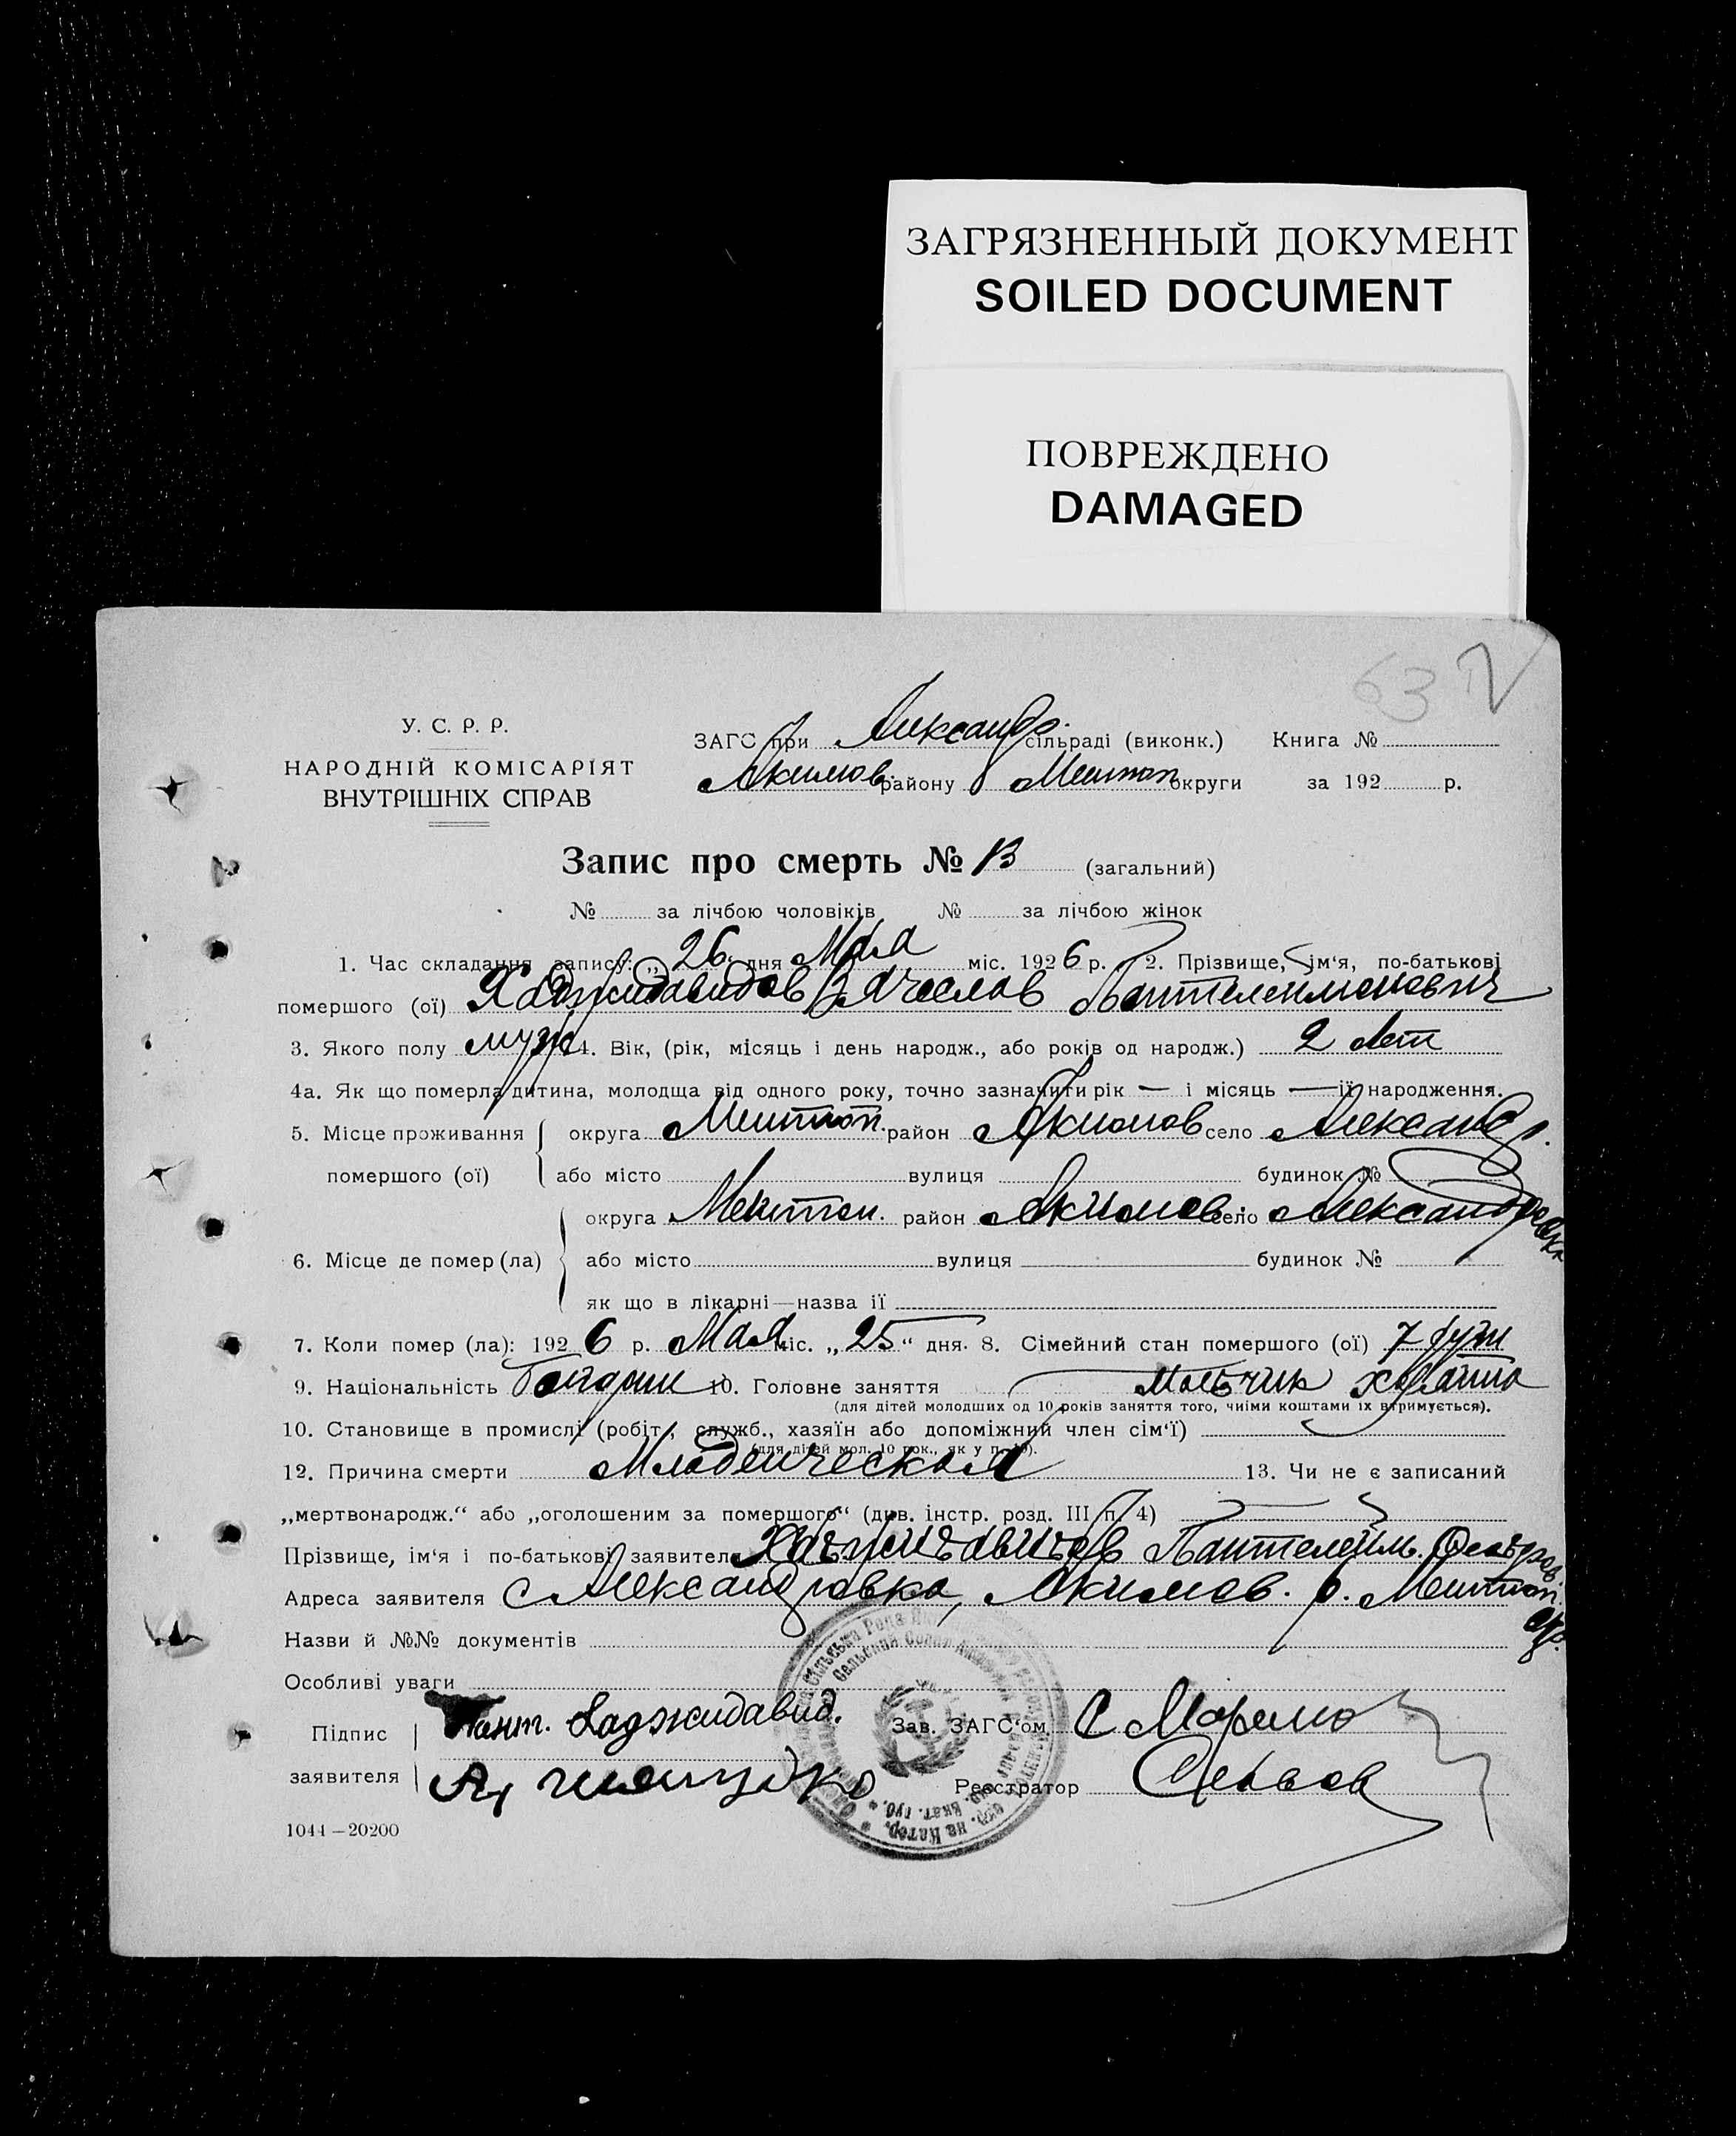 ЗАГРЯЗНЕННЫЙ ДОКУМЕНТ
SOILED DOCUMENT
ПОВРЕЖДЕНО
DAMAGED
63
У. С. Р. Р.
НАРОДНІЙ КОМІСАРІЯТ
ВНУТРІШНІХ СПРАВ
ЗАГС при Александр. сільраді (виконк.) Книга №
Акимов. району Мелитоп округи за 192 р.
Запис про смерть № 13 (загальний)
№ за лічбою чоловіків № за лічбою жінок
1. Час складання запису: „ 26 дня Мая міс. 1926 р. 2. Прізвище, ім‘я, по-батькові
помершого (ої) Хаджидавидов Вячеслав Пантелеимонович
3. Якого полу муж 4. Вік, (рік, місяць і день народж., або років од народж.) 2 лет
4а. Як що померла дитина, молодща від одного року, точно зазначити рік — і місяць — її народження.
5. Місце проживання округа Мелитоп. район Акимов село Александр.
помершого (ої) або місто вулиця будинок №
округа Мелитоп. район Акимов. село Александровка
6. Місце де помер (ла) або місто вулиця будинок №
як що в лікарні—назва її
7. Коли помер (ла): 1926 р. Мая міс. „25“ дня. 8. Сімейний стан помершого (ої)
9. Національність 10. Головне заняття
(для дітей молодших од 10 років заняття того, чиїми коштами їх втримується).
10. Становище в промислі (робіт., служб., хазяїн або допоміжний член сім‘ї)
(для дітей мол. 10 рок., як у п. 10).
12. Причина смерти Младенческая 13. Чи не є записаний
„мертвонародж.“ або „оголошеним за помершого“ (див. інстр. розд. III п. 4)
Прізвище, ім‘я і по-батькові заявителя Хаджидавидов Пантелейм.
Адреса заявителя с Александровка, Акимов. р. Мелитоп. окр.
Назви й №№ документів
Особливі уваги
Підпис Пант. Хаджидавид. Зав. ЗАГС‘ом
заявителя Реєстратор
1044—20200